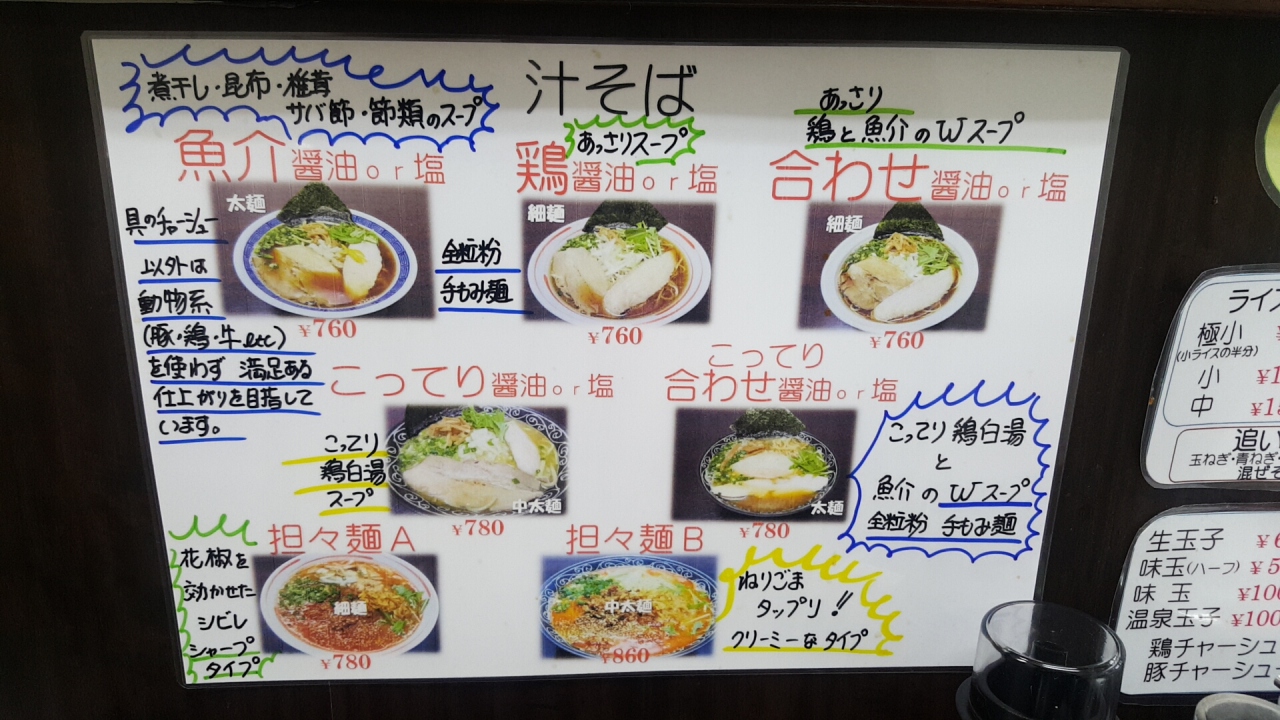 汁そば
煮干し・昆布・椎茸
サバ節・節類のスープ
魚介醤油or塩
太麺
¥760
具のチャーシュー
以外は
動物系
(豚・鶏・牛etc)
を使わず 満足ある
仕上がりを目指して
います。
全粒粉
手もみ麺
あっさりスープ
鶏醤油or塩
細麺
¥760
あっさり
鶏と魚介のWスープ
合わせ醤油or塩
細麺
¥760
こってり醤油or塩
こってり
鶏白湯
スープ
中太麺
¥780
こってり
合わせ醤油or塩
太麺
¥780
こってり鶏白湯
と
魚介のWスープ
全粒粉 手もみ麺
担々麺A
花椒を
効かせた
シビレ
シャープ
タイプ
細麺
¥780
担々麺B
中太麺
¥860
ねりごま
タップリ!!
クリーミーなタイプ
ライ
極小
(小ライスの半分)
小 ¥1
中 ¥1
追い
玉ねぎ・青ねぎ・
混ぜそ
生玉子 ¥6
味玉(ハーフ) ¥5
味玉 ¥100
温泉玉子 ¥100
鶏チャーシュ
豚チャーシュ